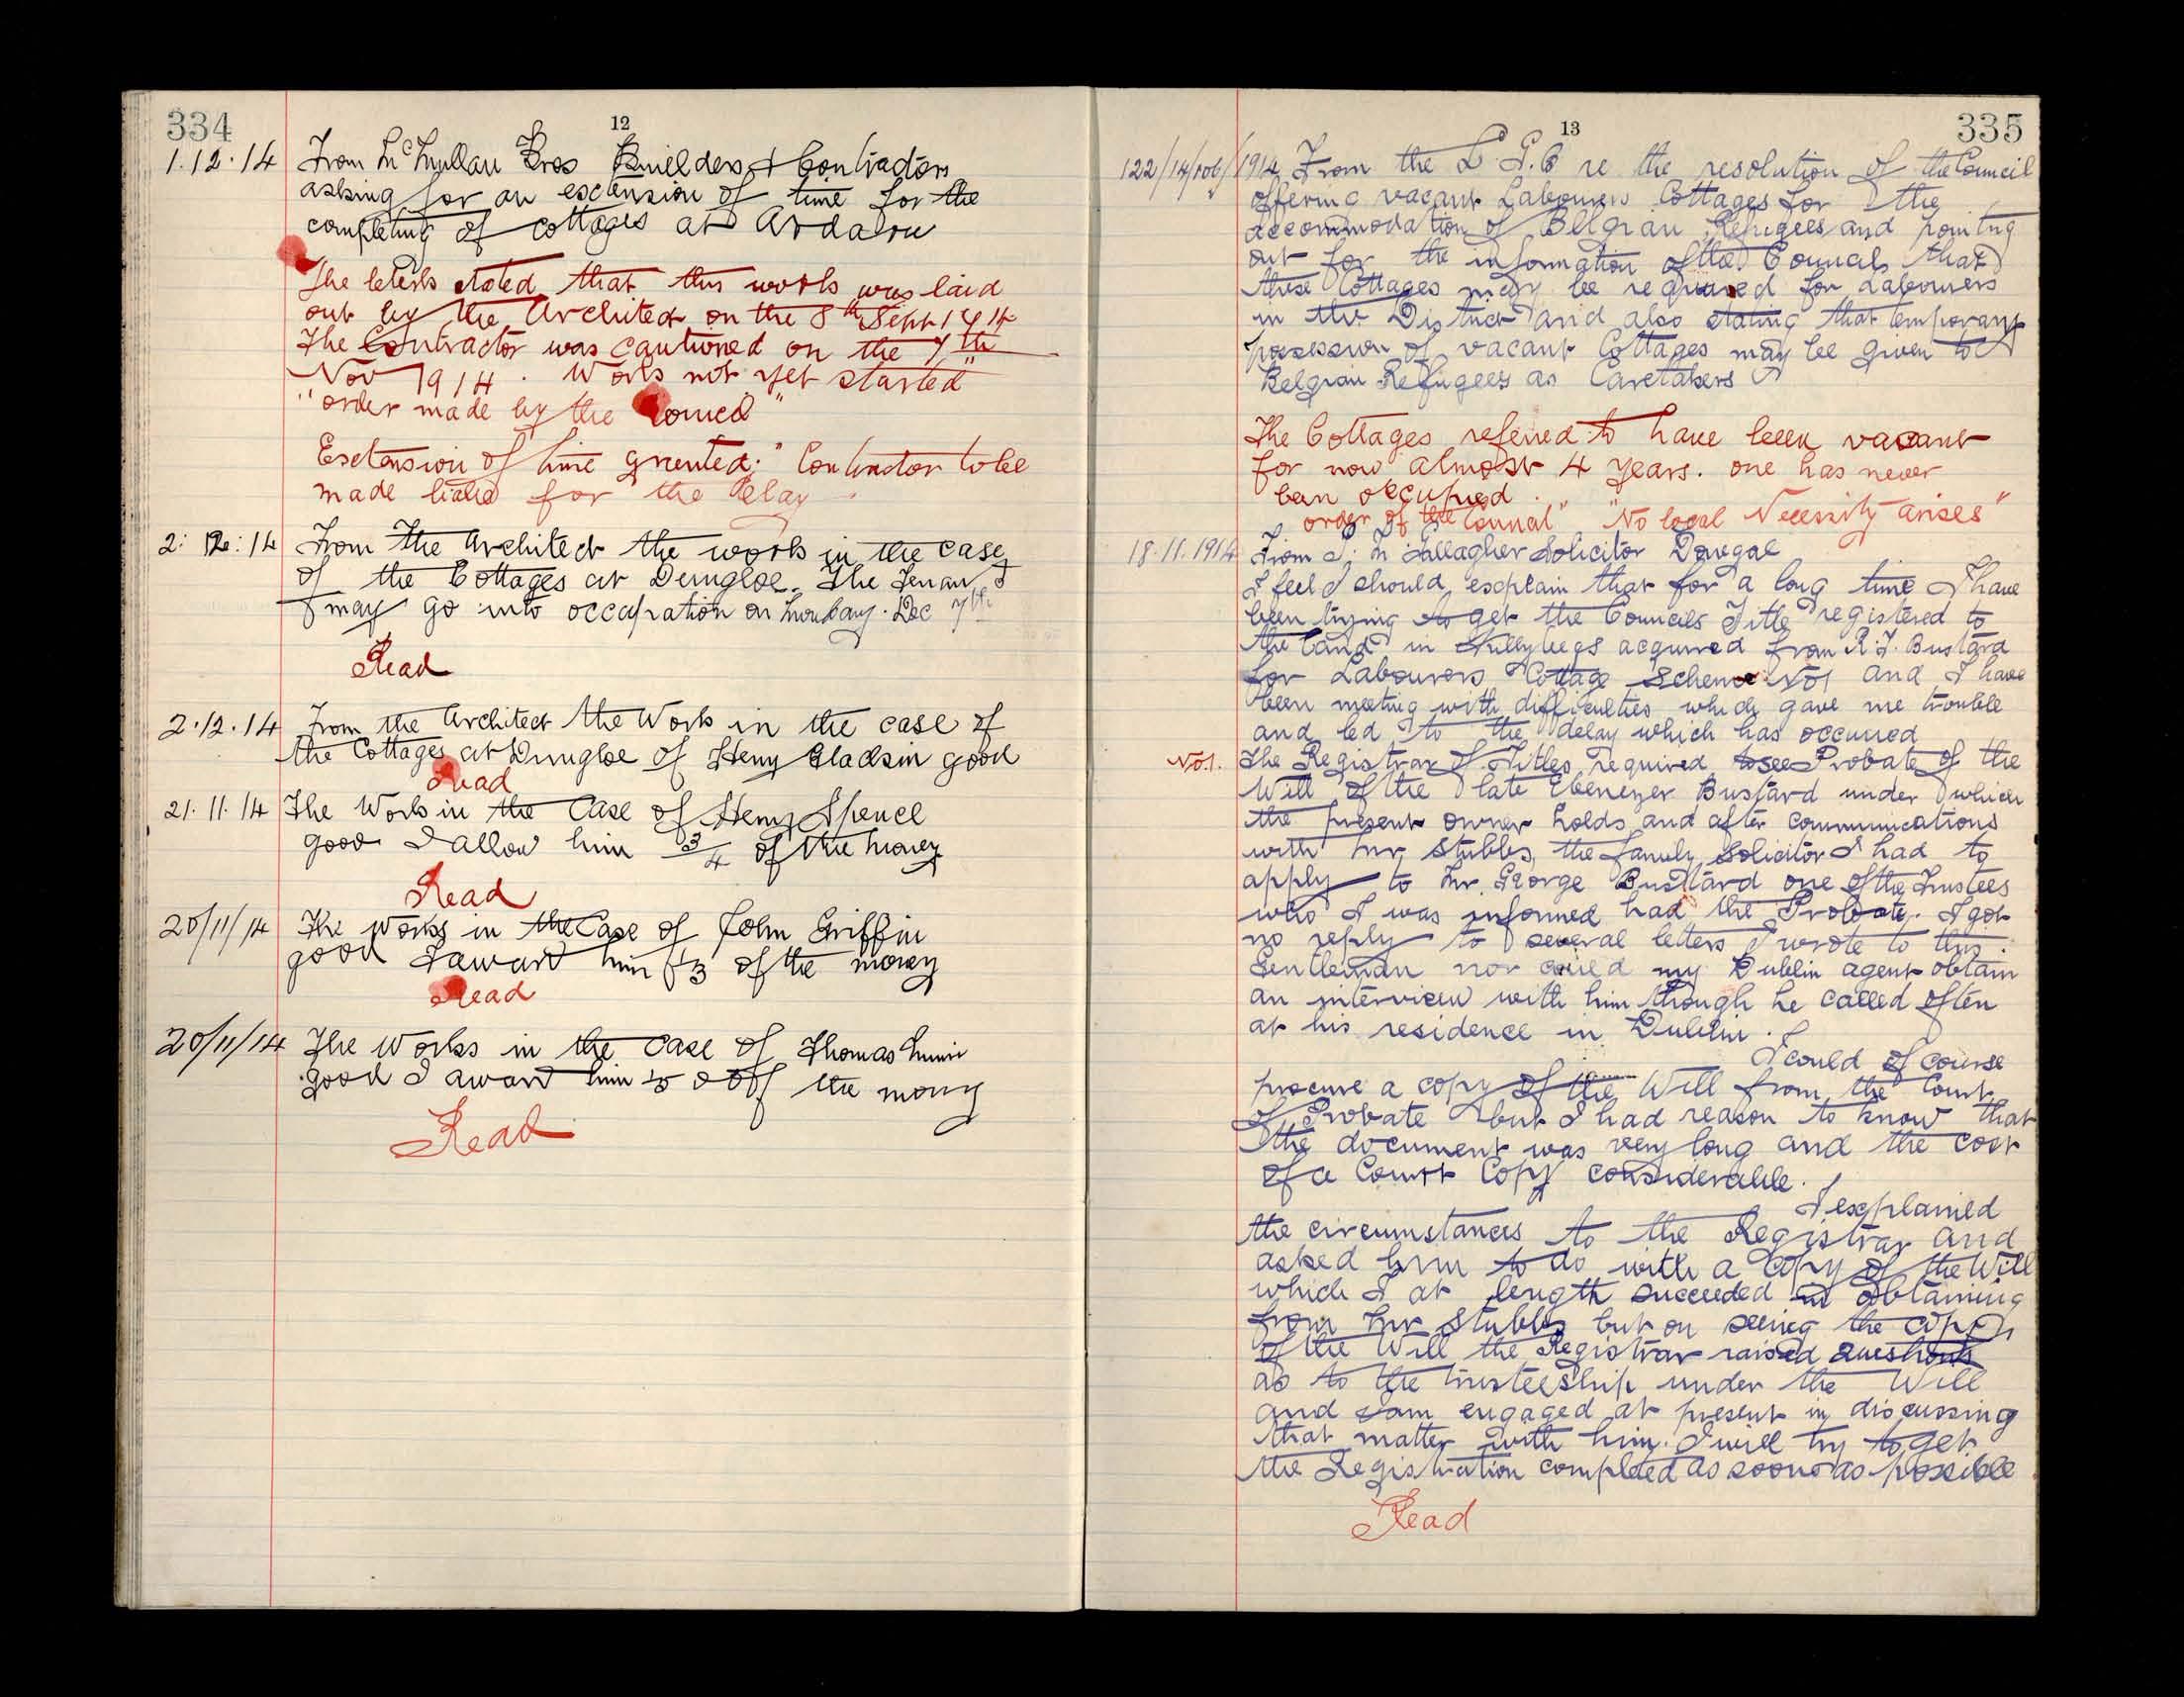 334
12
1.12.14 From McMullan Bros Builders & Contractors
asking for an extension of time for the
completing of cottages at Ardaru
The Clerk stated that this work was laid
out by the Architect on the 8th Sept 1914
The Contractor was cautioned on the 7th
Nov 1914. Work not yet started"
"order made by the Council"
Extension of time granted; "Contractor to be
made liable for the delay
2:12:14 From The Architect the work in the case
of the Cottages at Dungloe. The Tenants
may go into occupation on Monday. Dec 7th
Read
2.12.14 From the Architect the Work in the case of
the Cottages at Dungloe of Henry Gladsin good
Read
21.11.14 The Work in the Case of Henry Spence
good I allow him 3/4 of the money
Read
20/11/14 The Works in the Case of John Griffin
good I award him 1/3 of the money
Read
20/11/14 The Works in the case of Thomas
good I award him off the mony
Read
13
335
122/14/ /1914 From the L.G.B re the resolution of the Council
offering vacant Labourers Cottages for the
accommodation of Belgian Refugees and pointing
out for the information of the Councils that
these Cottages may be required for Labourers
in the District and also stating that temporary
possession of vacant Cottages may be given to
Belgian Refugees as Caretakers
The Cottages referred to have been vacant
for now almost 4 years. one has never
been occupied.
order of the Council" "No local Necessity arises"
18.11.1914 From J. M Gallagher Solicitor Donegal
I feel I should explain that for a long time I have
been trying to get the Councils Title registered to
the land in Killybegs acquired from R.J. Bustard
for Labourers Cottage Scheme No1 and I have
been meeting with difficulties which gave me trouble
and led to the delay which has occurred
No.1. The Registrar of Titles required to see Probate of the
Will of the late Ebenezer Bustard under which
the present owner holds and after communications
with Mr Stubbs, the family Solicitor I had to
apply to Mr. George Bustard one of the Trustees
who I was informed had the Probate. I got
no reply to several letters I wrote to this
Gentleman nor could my Dublin agent obtain
an interview with him though he called often
at his residence in Dublin.
I could of course
procure a copy of the Will from the Court
of Probate but I had reason to know that
the document was very long and the cost
of a Court Copy considerable.
I explained
the circumstances to the Registrar and
asked him to do with a Copy of the Will
which I at length succeeded in obtaining
from Mr Stubbs but on seeing the copy
of the Will the Registrar raised questions
as to the trusteeship under the Will
and I am engaged at present in discussing
that matter with him. I will try to get
the Registration completed as soon as possible
Read